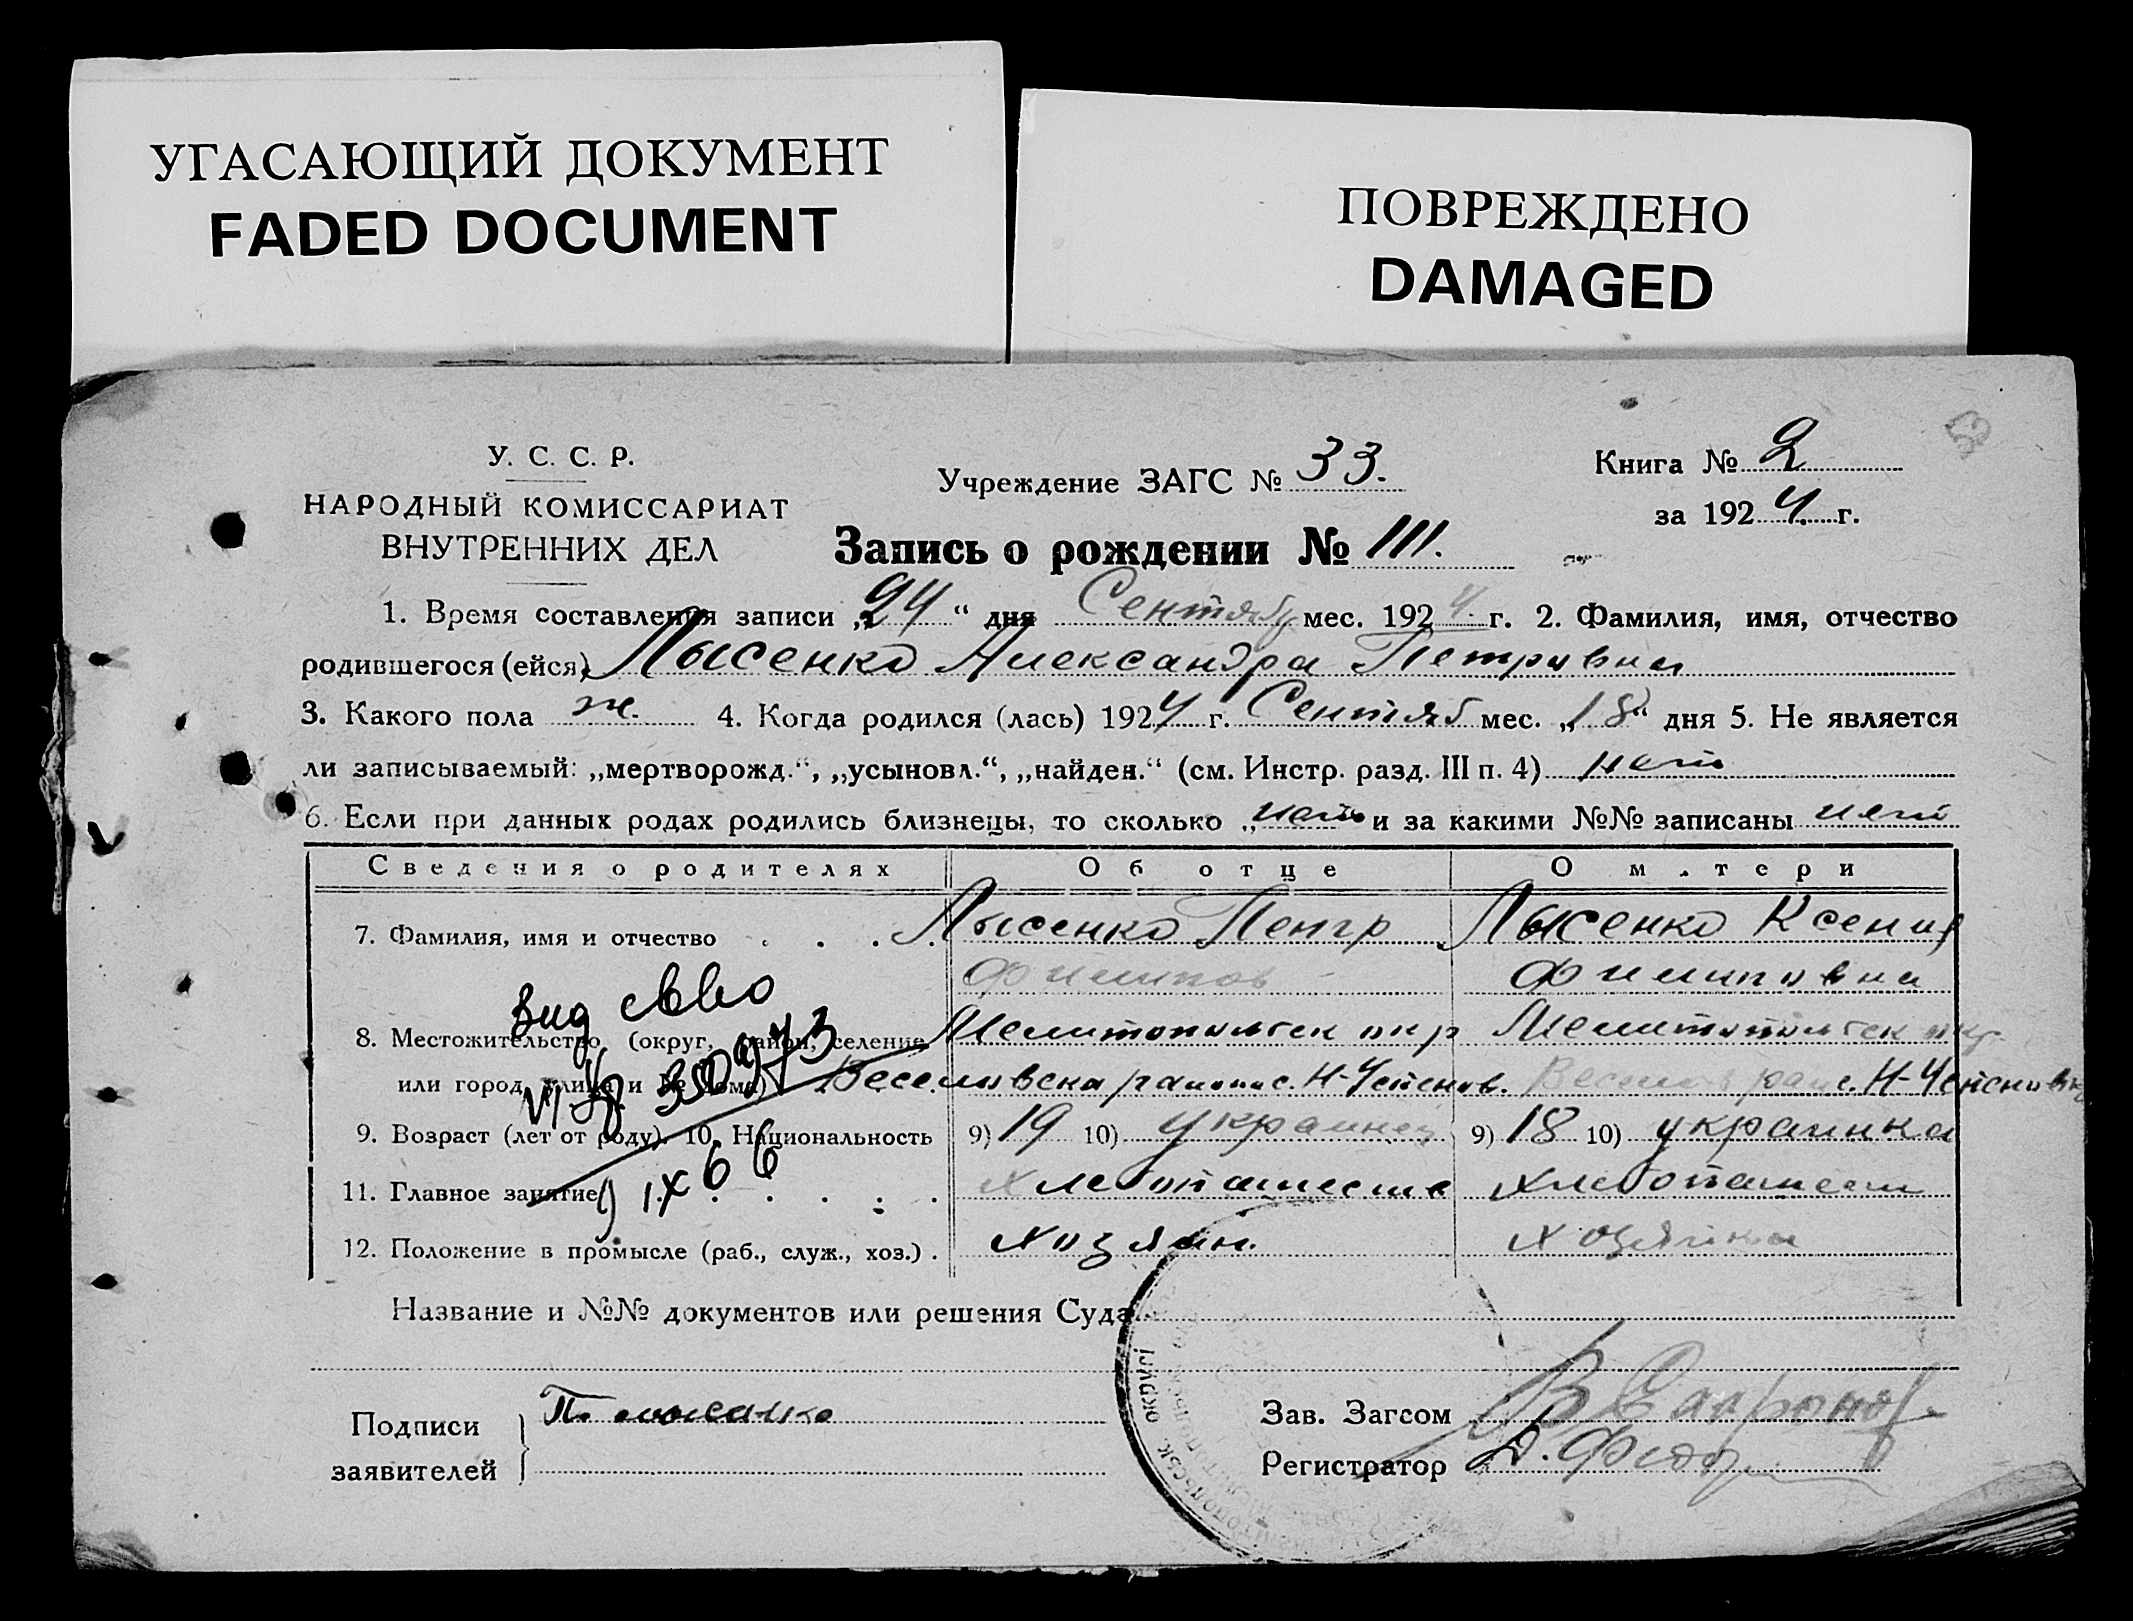 УГАСАЮЩИЙ ДОКУМЕНТ
FADED DOCUMENT
ПОВРЕЖДЕНО
DAMAGED
У. С. С. Р.
НАРОДНЫЙ КОМИССАРИАТ
ВНУТРЕННИХ ДЕЛ
Учреждение ЗАГС № 33.
Книга № 2
за 1924 г.
Запись о рождении № 111.
1. Время составления записи „24“ дня Сентябр мес. 1924 г. 2. Фамилия, имя, отчество
родившегося (ейся) Лысенко Александра Петровна
3. Какого пола ж. 4. Когда родился (лась) 1924 г. Сентяб мес. „18“ дня 5. Не является
ли записываемый: „мертворожд.“, „усыновл.“, „найден.“ (см. Инстр. разд. III п. 4) нет
6. Если при данных родах родились близнецы, то сколько „нет“ и за какими №№ записаны нет
Сведения о родителях Об отце О матери
7. Фамилия, имя и отчество Лысенко Петр Лысенко Ксения
Филипов Филиповна
Вид св-во
8. Местожительство (округ, район, селение Мелитопольск окр Мелитопольск окр
или город, улица и № дома) Веселовска района с. Н-Успенов. Веселов рай с. Н-Успеновк
350973
9. Возраст (лет от роду). 10. Национальность 9) 19 10) украинец 9) 18 10) украинка
11. Главное занятие хлебопашество хлебопашест
9 IX 66
12. Положение в промысле (раб., служ., хоз.) хозяин. хозяйка
Название и №№ документов или решения Суда
Подписи
заявителей
Зав. Загсом
Регистратор
округі